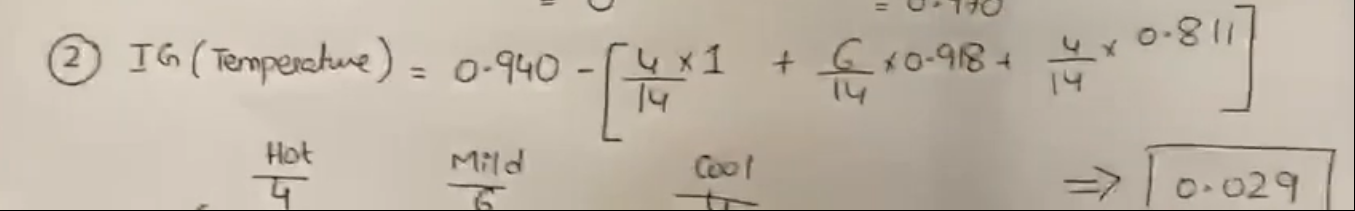 = 0.940
② IG (Temperature) = 0.940 - [4/14 × 1 + 6/14 × 0.918 + 4/14 × 0.811]
Hot Mild Cool
4 6 4 => 0.029